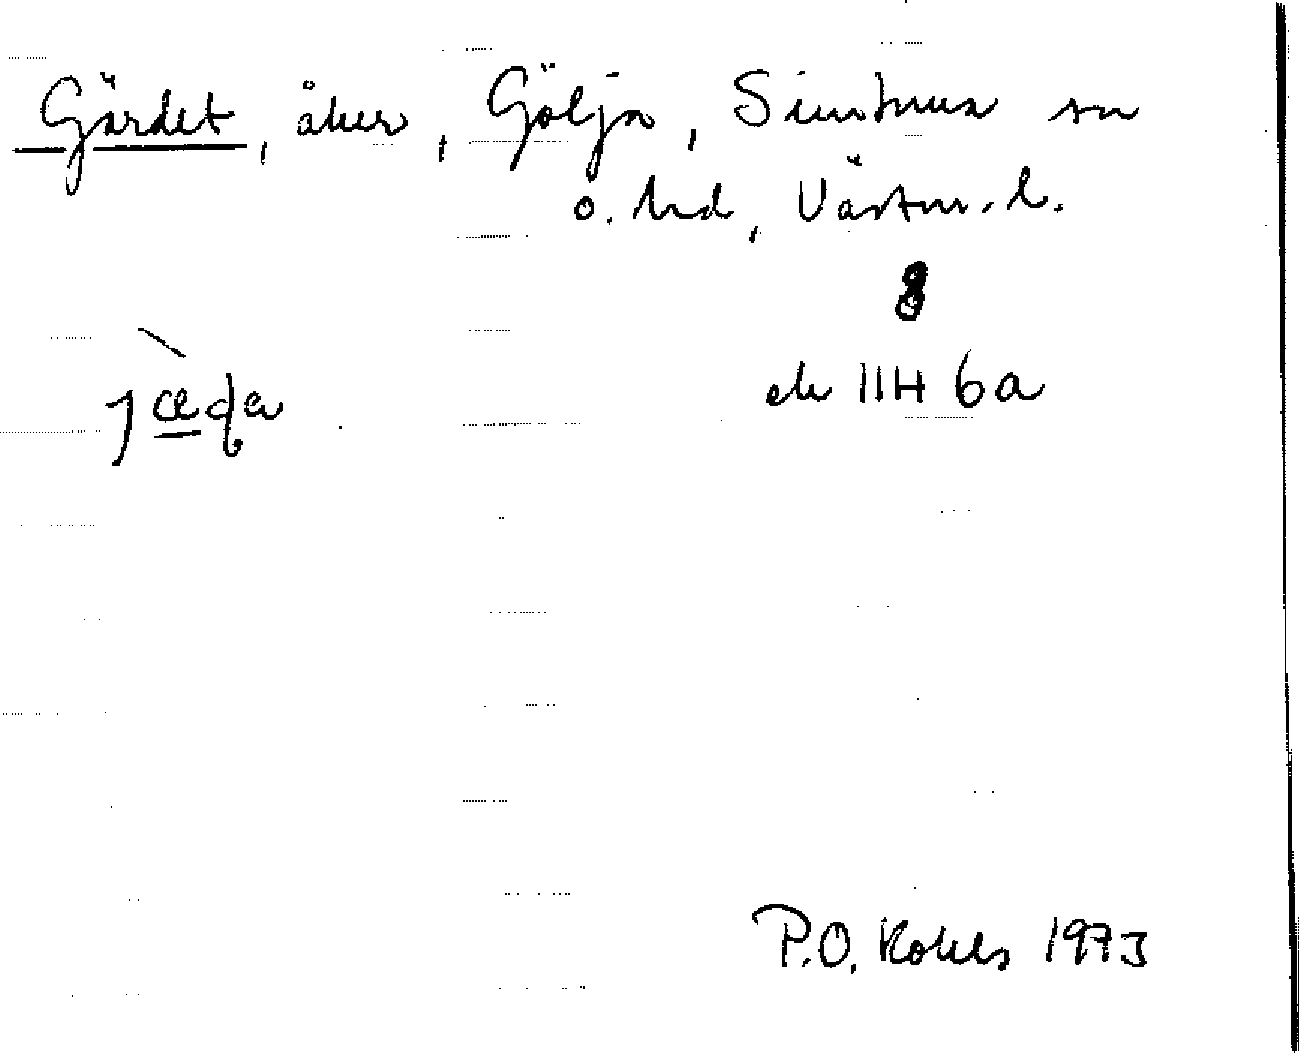 Gärdet, åker, Gölja, Simtuna sn
o. hd, Västm. l.
8
ek 11H 6a
P.O. Kohls 1973